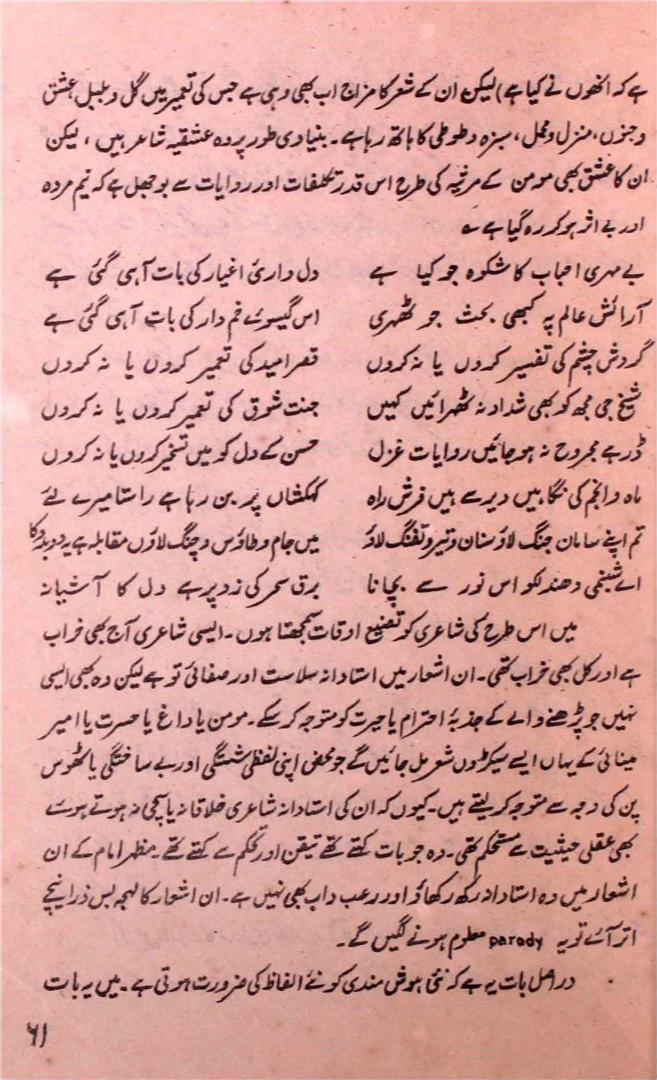 ہے کہ انھوں نے کیا ہے) لیکن ان کے شعر کا مزاج اب بھی وہی ہے جس کی تعمیر میں گل و بلبل، عشق
وجنوں، منزل و محمل، سبزہ و طوطی کا ہاتھ رہا ہے۔ بنیادی طور پر وہ عشقیہ شاعر ہیں، لیکن
ان کا عشق بھی مومن کے مرثیہ کی طرح اس قدر تکلفات اور روایات سے بوجھل ہے کہ نیم مردہ
اور بے اثر ہو کر رہ گیا ہے ؎
بے مہری احباب کا شکوہ جو کیا ہے دل داریٔ اغیار کی بات آ ہی گئی ہے
آرائش عالم پہ کبھی بحث جو ٹھہری اس گیسوئے خم دار کی بات آ ہی گئی ہے
گردش چشم کی تفسیر کروں یا نہ کروں قصر امید کی تعمیر کروں یا نہ کروں
شیخ جی مجھ کو بھی شداد نہ ٹھہرائیں کہیں جنت شوق کی تعمیر کروں یا نہ کروں
ڈر ہے مجروح نہ ہو جائیں روایات غزل حسن کے دل کو میں تسخیر کروں یا نہ کروں
ماہ و انجم کی نگاہیں دیر سے ہیں فرش راہ کہکشاں پھر بن رہا ہے راستا میرے لئے
تم اپنے سامان جنگ لاؤ سنان و تیر و تفنگ لاؤ میں جام و طاؤس و چنگ لاؤں مقابلہ ہے یہ دوبدو کا
اے شبنمی دھندلکو اس نور سے بچانا برق سحر کی زد پر ہے دل کا آشیانہ
میں اس طرح کی شاعری کو تضیع اوقات سمجھتا ہوں۔ ایسی شاعری آج بھی خراب
ہے اور کل بھی خراب تھی۔ ان اشعار میں استادانہ سلاست اور صفائی تو ہے لیکن وہ بھی ایسی
نہیں جو پڑھنے والے کے جذبۂ احترام یا حیرت کو متوجہ کر سکے۔ مومن یا داغ یا حسرت یا امیر
مینائی کے یہاں ایسے سیکڑوں شعر مل جائیں گے جو محض اپنی لفظی شستگی اور بے ساختگی یا ٹھوس
پن کی وجہ سے متوجہ کر لیتے ہیں۔ کیوں کہ ان کی استادانہ شاعری خلاقانہ یا سچی نہ ہوتے ہوئے
بھی عقلی حیثیت سے مستحکم تھی۔ وہ جو بات کہتے تھے تیقن اور تحکم سے کہتے تھے۔ مظہر امام کے ان
اشعار میں وہ استادانہ رکھ رکھاؤ اور رعب داب بھی نہیں ہے۔ ان اشعار کا لہجہ بس ذرا نیچے
اتر آئے تو یہ parody معلوم ہونے لگیں گے۔
در اصل بات یہ ہے کہ نئی ہوش مندی کو نئے الفاظ کی ضرورت ہوتی ہے۔ میں یہ بات
۶۱